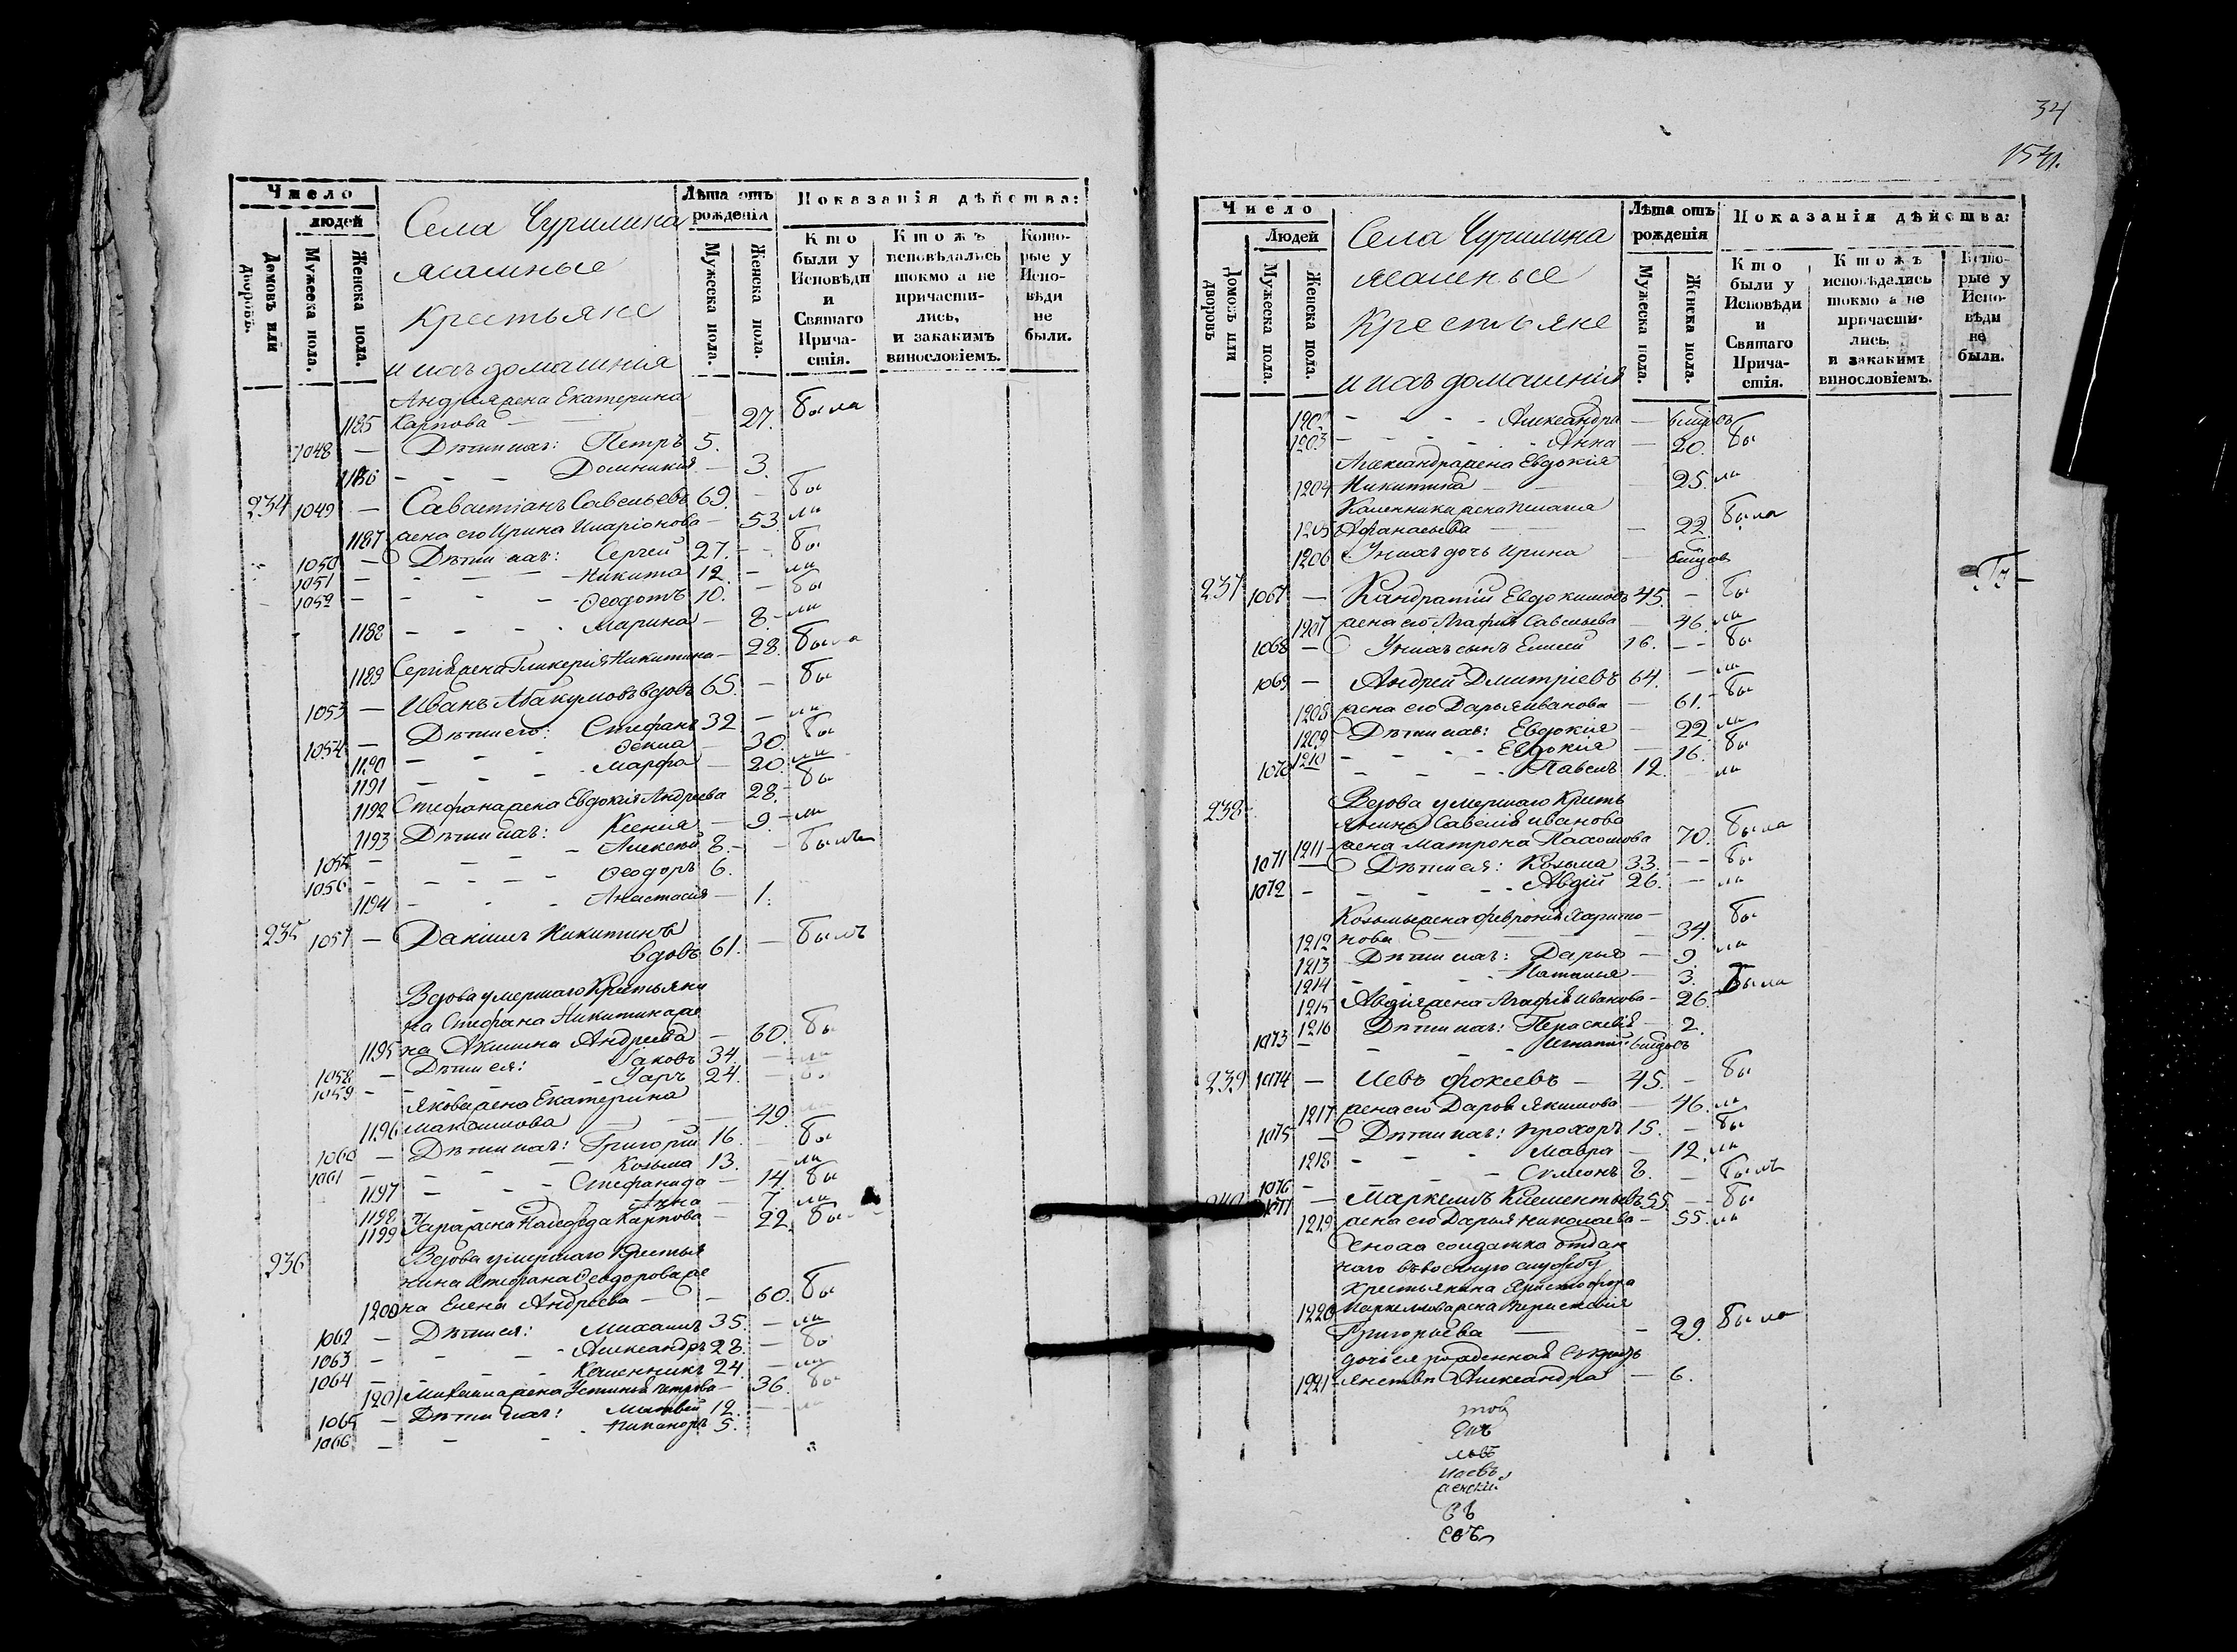 Число
людей
Домовъ или дворовъ.
Мужеска пола.
Женска пола.
Села Чурилина
ясашные
крестьяне
и ихъ домашнія
Лѣта отъ рожденія
Мужеска пола.
Женска пола.
Показанія дѣйства:
Кто были у Исповѣди и Святаго Причастія.
Ктожъ исповѣдались токмо а не причастились, и закакимъ винословіемъ.
Которые у Исповѣди не были.
Андрея жена Екатерина
1185 Карпова — 27. была
1048 — Дѣти ихъ: Петръ 5.
1186 - - - Домникия — 3.
234 1049 — Савастіанъ Савельевъ 69. — бы
1187 жена его Ирина Иларіонова — 53. ли
1050 — Дѣти ихъ: Сергей 27. - - бы
1051 — - - - Никита 12. — ли
1052 — - - - Ѳеодотъ 10. — бы
1188 - - - Марина — 8. ли
1189 Сергія жена Гликерія Никитина — 28. была
1053 — Иванъ Абакумовъ вдовъ 65. — бы
1054 — Дѣти его: Стефанъ 32 — ли
1190 - - - Ѳекла — 30. бы
1191 - - - Марфа — 20. ли
1192 Стефана жена Евдокія Андреева 28. бы
1193 Дѣти ихъ: Ксенія — 9. ли
1055 — - - - Алексѣй 8. - - былъ
1056 — - - - Ѳеодоръ 6.
1194 - - - Анастасія — 1.
235 1057 — Даніилъ Никитинъ
вдовъ 61. — былъ
Вдова умершаго Крестьяни
на Стефана Никитина же
1195 на Акилина Андреева — 60. бы
1058 — Дѣти ея: Іаковъ 34. — ли
1059 — - - - Уаръ 24. — бы
Якова жена Екатерина
1196 Максимова — 49. ли
1060 — Дѣти ихъ: Григорій 16. — бы
1061 — - - - Козьма 13. — ли
1197 - - - Стефанида — 14. бы
1198 - - - Анна — 7. ли
1199 Уара жена Надежда Карпова — 22. бы
236 Вдова умершаго Крестья
нина Стефана Ѳеодорова же
1200 на Елена Андреева — 60. бы
1062 — Дѣти ея: Михаилъ 35. — ли
1063 — - - - Александръ 28. — бы
1064 — - - - Калинникъ 24. — ли
1201 Михаила жена Устинія Петрова — 36. бы
1065 — Дѣти ихъ: Матвѣй 12. — ли
1066 — - - - Никаноръ 5.
34
1541.
Число
Людей
Домовъ или дворовъ
Мужеска пола.
Женска пола.
Села Чурилина
ясашныe
Крестьяне
и ихъ домашнія
Лѣта отъ рожденія
Мужеска пола.
Женска пола.
Показанія дѣйства:
Кто были у Исповѣди и Святаго Причастія.
Ктожъ исповѣдались токмо а не причастились, и закакимъ винословіемъ.
Которые у Исповѣди не были.
1202 - - - Александра —
1203 - - - Анна — 20. бы
Александра жена Евдокія
1204 Никитина — 25. ли
Калинника жена Пелагія
1205 Афанасьева — 22. была
1206 У нихъ дочь Ирина —
237 1067 — Кандратій Евдокимовъ 45. — бы
1207 жена его Агафія Савельева — 46. ли
1068 — У нихъ сынъ Елисей 16. - - бы
1069 — Андрей Дмитріевъ 64. — ли
1208 жена его Дарья Иванова — 61. бы
1209 Дѣти ихъ: Евдокія — 22. ли
1210 - - - Евдокія — 16. бы
1070 - - - Павелъ 12. — ли
238 Вдова умершаго Кресть
янина Савелія Иванова
1211 жена Матрона Пахомова 70. была
1071 — Дѣти ея: Козьма 33. - - бы
1072 — - - - Авдій 26. — ли
Козьмы жена Февронія Харито-
1212 нова — 34. бы
1213 Дѣти ихъ: Дарья — 9. ли
1214 - - - Наталія — 3.
1215 Авдія жена Агафія Иванова — 26. была
1216 Дѣти ихъ: Параскевія — 2.
1073 — - - - Игнатій
239 1074 — Іевъ Фокѣевъ — 45. — бы
1217 жена его Дарья Якимова — 46. ли
1075 — Дѣти ихъ: Прохоръ 15. — бы
1218 - - - Мавра — 12. ли
1076 — - - - Симеонъ 8. — былъ
240 1077 — Маркеллъ Климентьевъ 55. - - бы
1219 жена его Дарья Николаева — 55. ли
Сноха солдатка отдан
наго въ военную службу
крестьянина Христофора
1220 Маркелова жена Параскевія
Григорьева — 29. была
дочь ея
1221 Александра — 6.